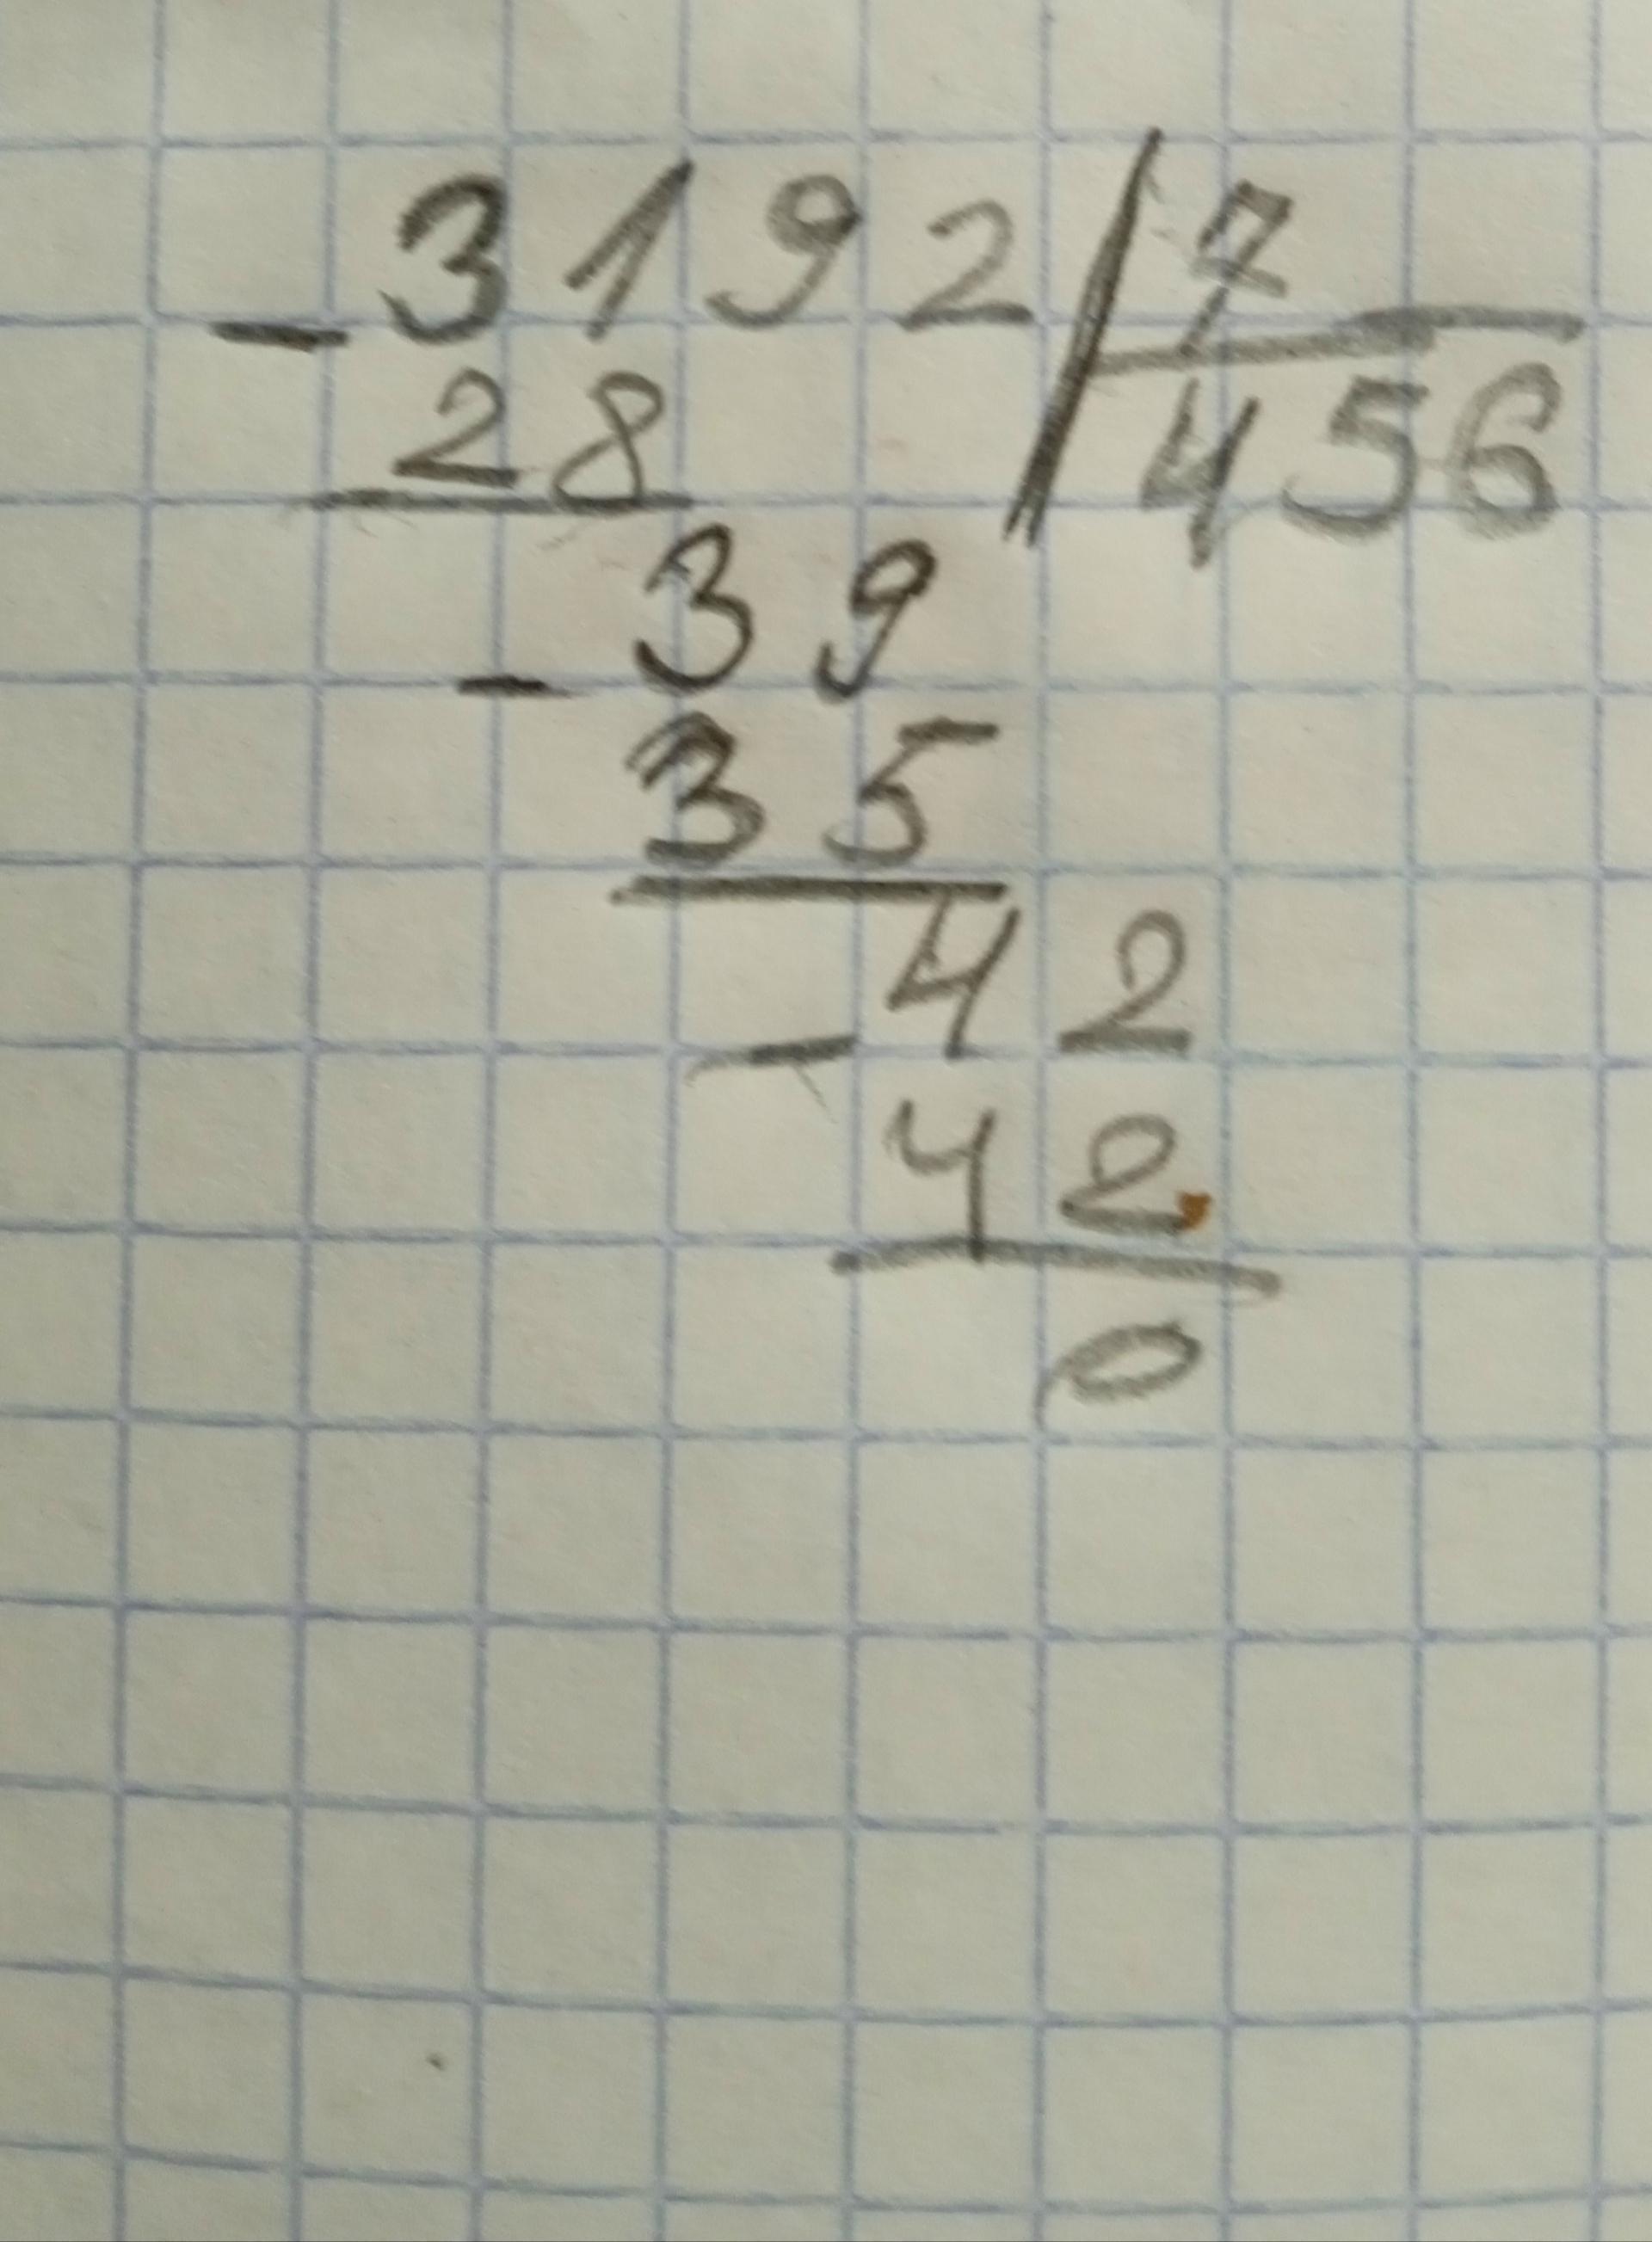 - 3192 | 7
28 | 456
- 39
35
- 42
42
0